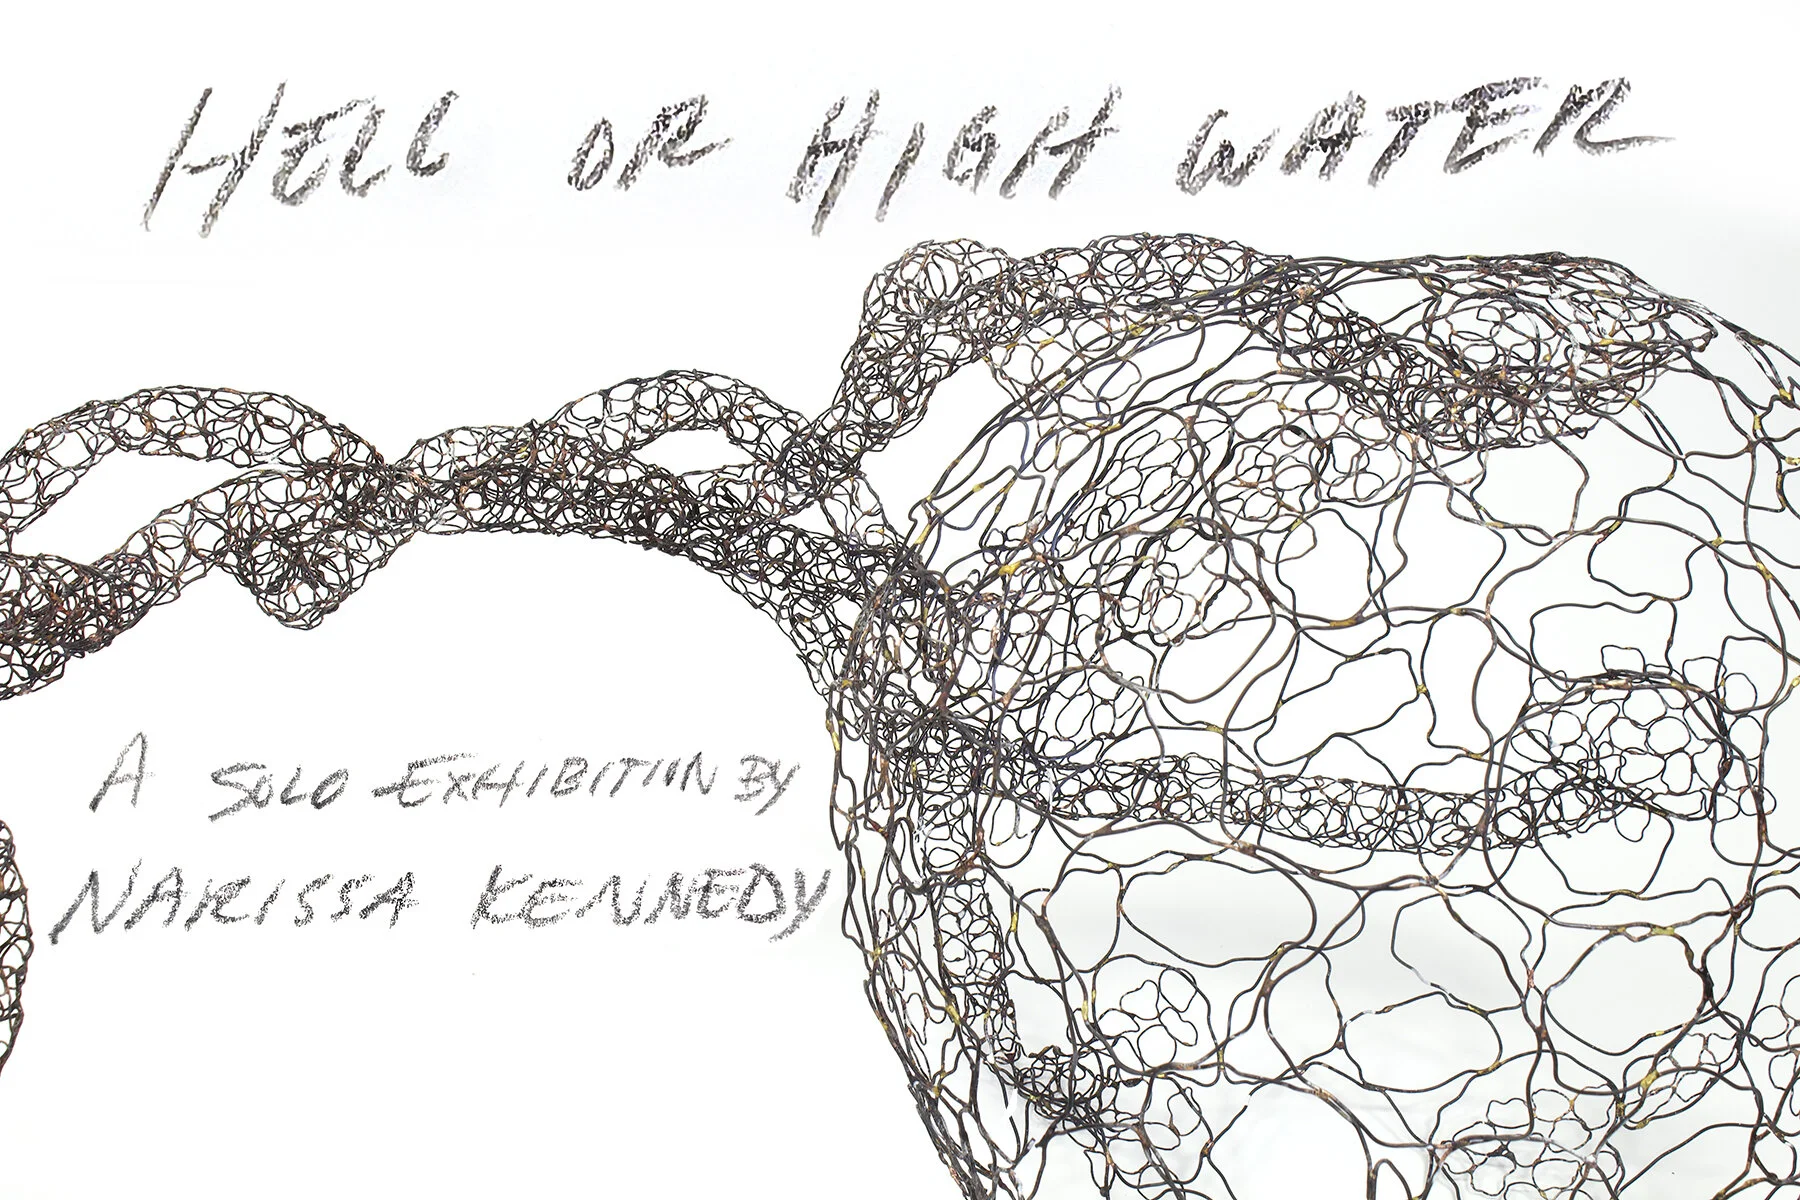 HELL OR HIGH WATER
A SOLO EXHIBITION BY
NARISSA KENNEDY